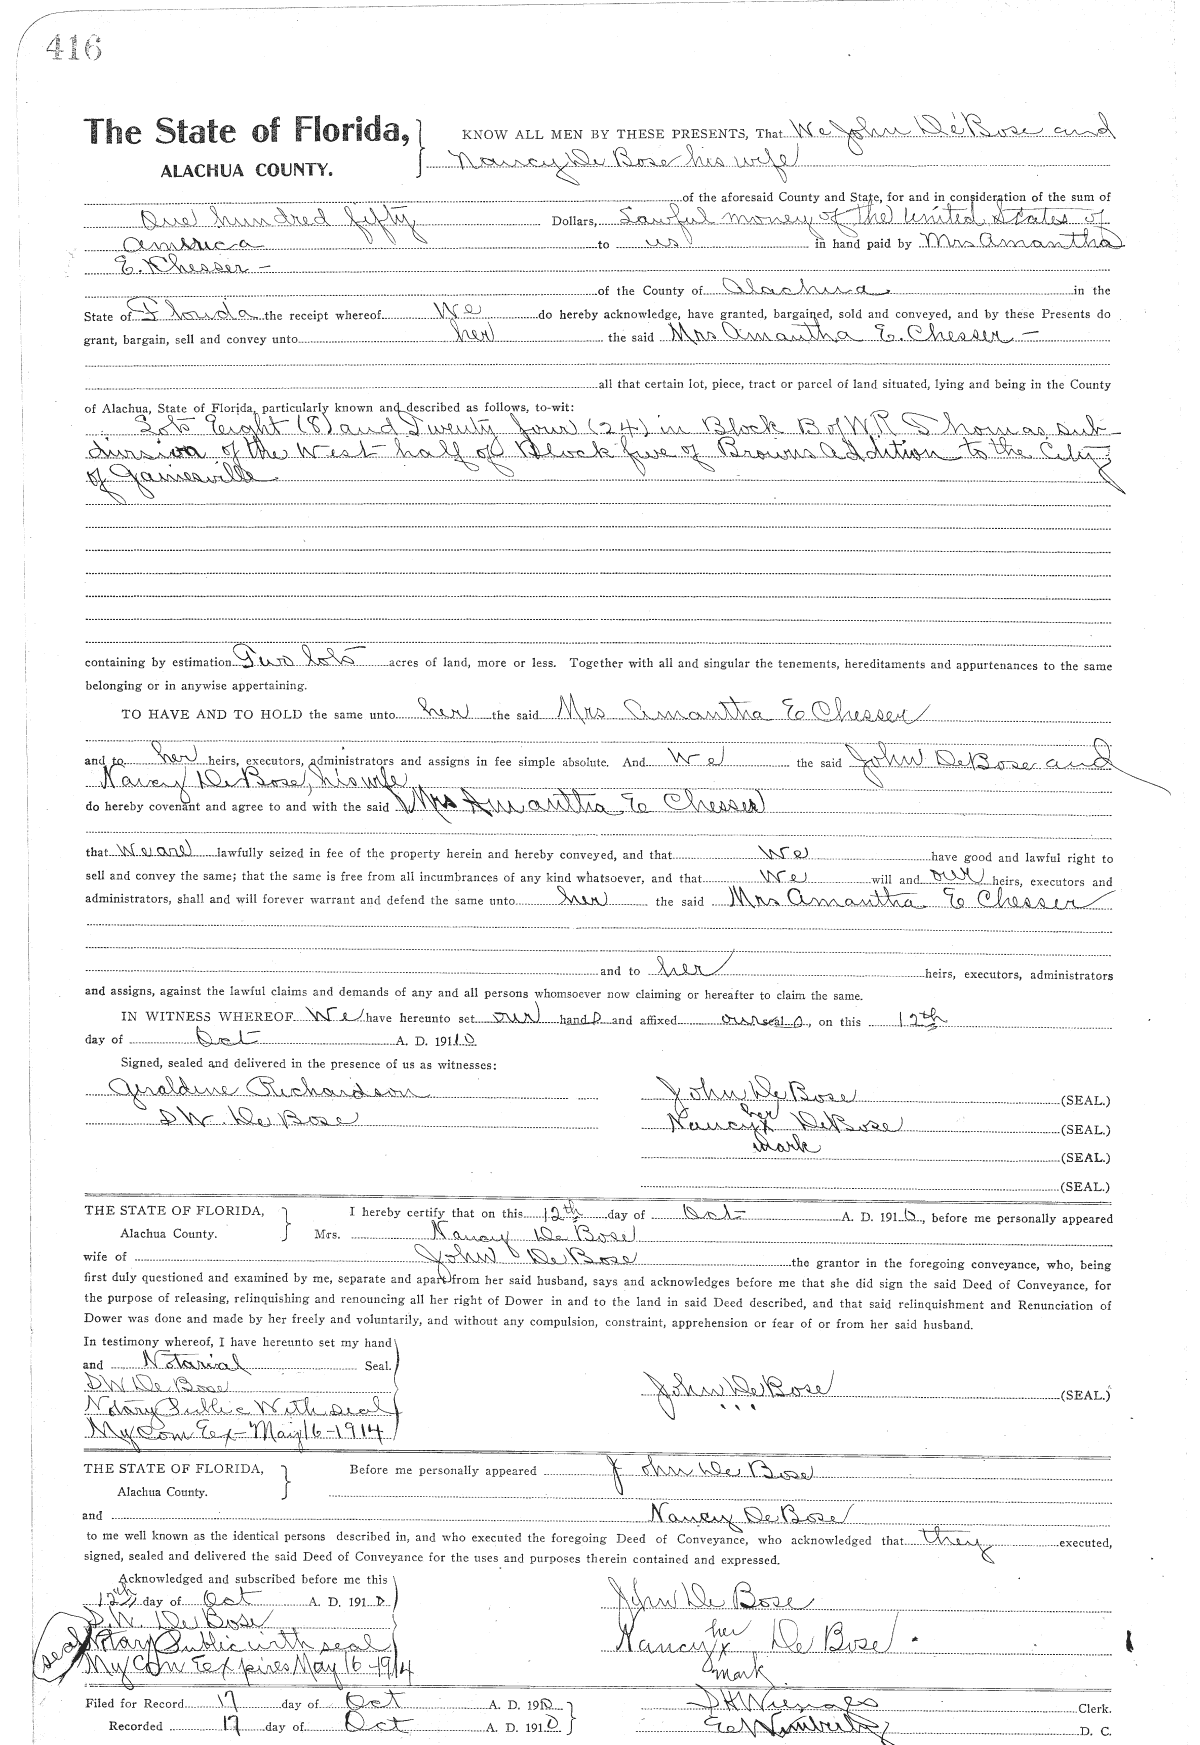 416
The State of Florida, KNOW ALL MEN BY THESE PRESENTS, That We John De Bose and
ALACHUA COUNTY. Nancy De Bose his wife
of the aforesaid County and State, for and in consideration of the sum of
One hundred fifty Dollars, Lawful money of the United States of
America to us in hand paid by Mrs Amantha
E. Chesser -
of the County of Alachua in the
State of Florida the receipt whereof We do hereby acknowledge, have granted, bargained, sold and conveyed, and by these Presents do
grant, bargain, sell and convey unto her the said Mrs Amantha E. Chesser -
all that certain lot, piece, tract or parcel of land situated, lying and being in the County
of Alachua, State of Florida, particularly known and described as follows, to-wit:
Lots Eight (8) and Twenty four (24) in Block B of W R Thomas sub-
division of the West half of Block five of Browns Addition to the City
of Gainesville
containing by estimation Two lots acres of land, more or less. Together with all and singular the tenements, hereditaments and appurtenances to the same
belonging or in anywise appertaining.
TO HAVE AND TO HOLD the same unto her the said Mrs Amantha E Chesser
and to her heirs, executors, administrators and assigns in fee simple absolute. And We the said John De Bose and
Nancy De Bose, his wife
do hereby covenant and agree to and with the said Mrs Amantha E Chesser
that We are lawfully seized in fee of the property herein and hereby conveyed, and that We have good and lawful right to
sell and convey the same; that the same is free from all incumbrances of any kind whatsoever, and that We will and our heirs, executors and
administrators, shall and will forever warrant and defend the same unto her the said Mrs Amantha E Chesser
and to her heirs, executors, administrators
and assigns, against the lawful claims and demands of any and all persons whomsoever now claiming or hereafter to claim the same.
IN WITNESS WHEREOF We have hereunto set our hands and affixed our seals, on this 12th
day of Oct A. D. 1910
Signed, sealed and delivered in the presence of us as witnesses:
Geraldine Richardson John De Bose (SEAL.)
D W. De Bose Nancy her x mark De Bose (SEAL.)
(SEAL.)
(SEAL.)
THE STATE OF FLORIDA, I hereby certify that on this 12th day of Oct A. D. 1910, before me personally appeared
Alachua County. Mrs. Nancy De Bose
wife of John De Bose the grantor in the foregoing conveyance, who, being
first duly questioned and examined by me, separate and apart from her said husband, says and acknowledges before me that she did sign the said Deed of Conveyance, for
the purpose of releasing, relinquishing and renouncing all her right of Dower in and to the land in said Deed described, and that said relinquishment and Renunciation of
Dower was done and made by her freely and voluntarily, and without any compulsion, constraint, apprehension or fear of or from her said husband.
In testimony whereof, I have hereunto set my hand
and Notarial Seal.
D W De Bose John De Bose (SEAL.)
Notary Public With seal
My Com Ex- May 16-1914
THE STATE OF FLORIDA, Before me personally appeared John De Bose
Alachua County.
and Nancy De Bose
to me well known as the identical persons described in, and who executed the foregoing Deed of Conveyance, who acknowledged that they executed,
signed, sealed and delivered the said Deed of Conveyance for the uses and purposes therein contained and expressed.
Acknowledged and subscribed before me this
12th day of Oct A. D. 1910 John De Bose
D.W. De Bose
seal Notary Public with seal Nancy her x mark De Bose
My Com Expires May 16-1914
Filed for Record 17 day of Oct A. D. 1910 Clerk.
Recorded 17 day of Oct A. D. 1910 D. C.